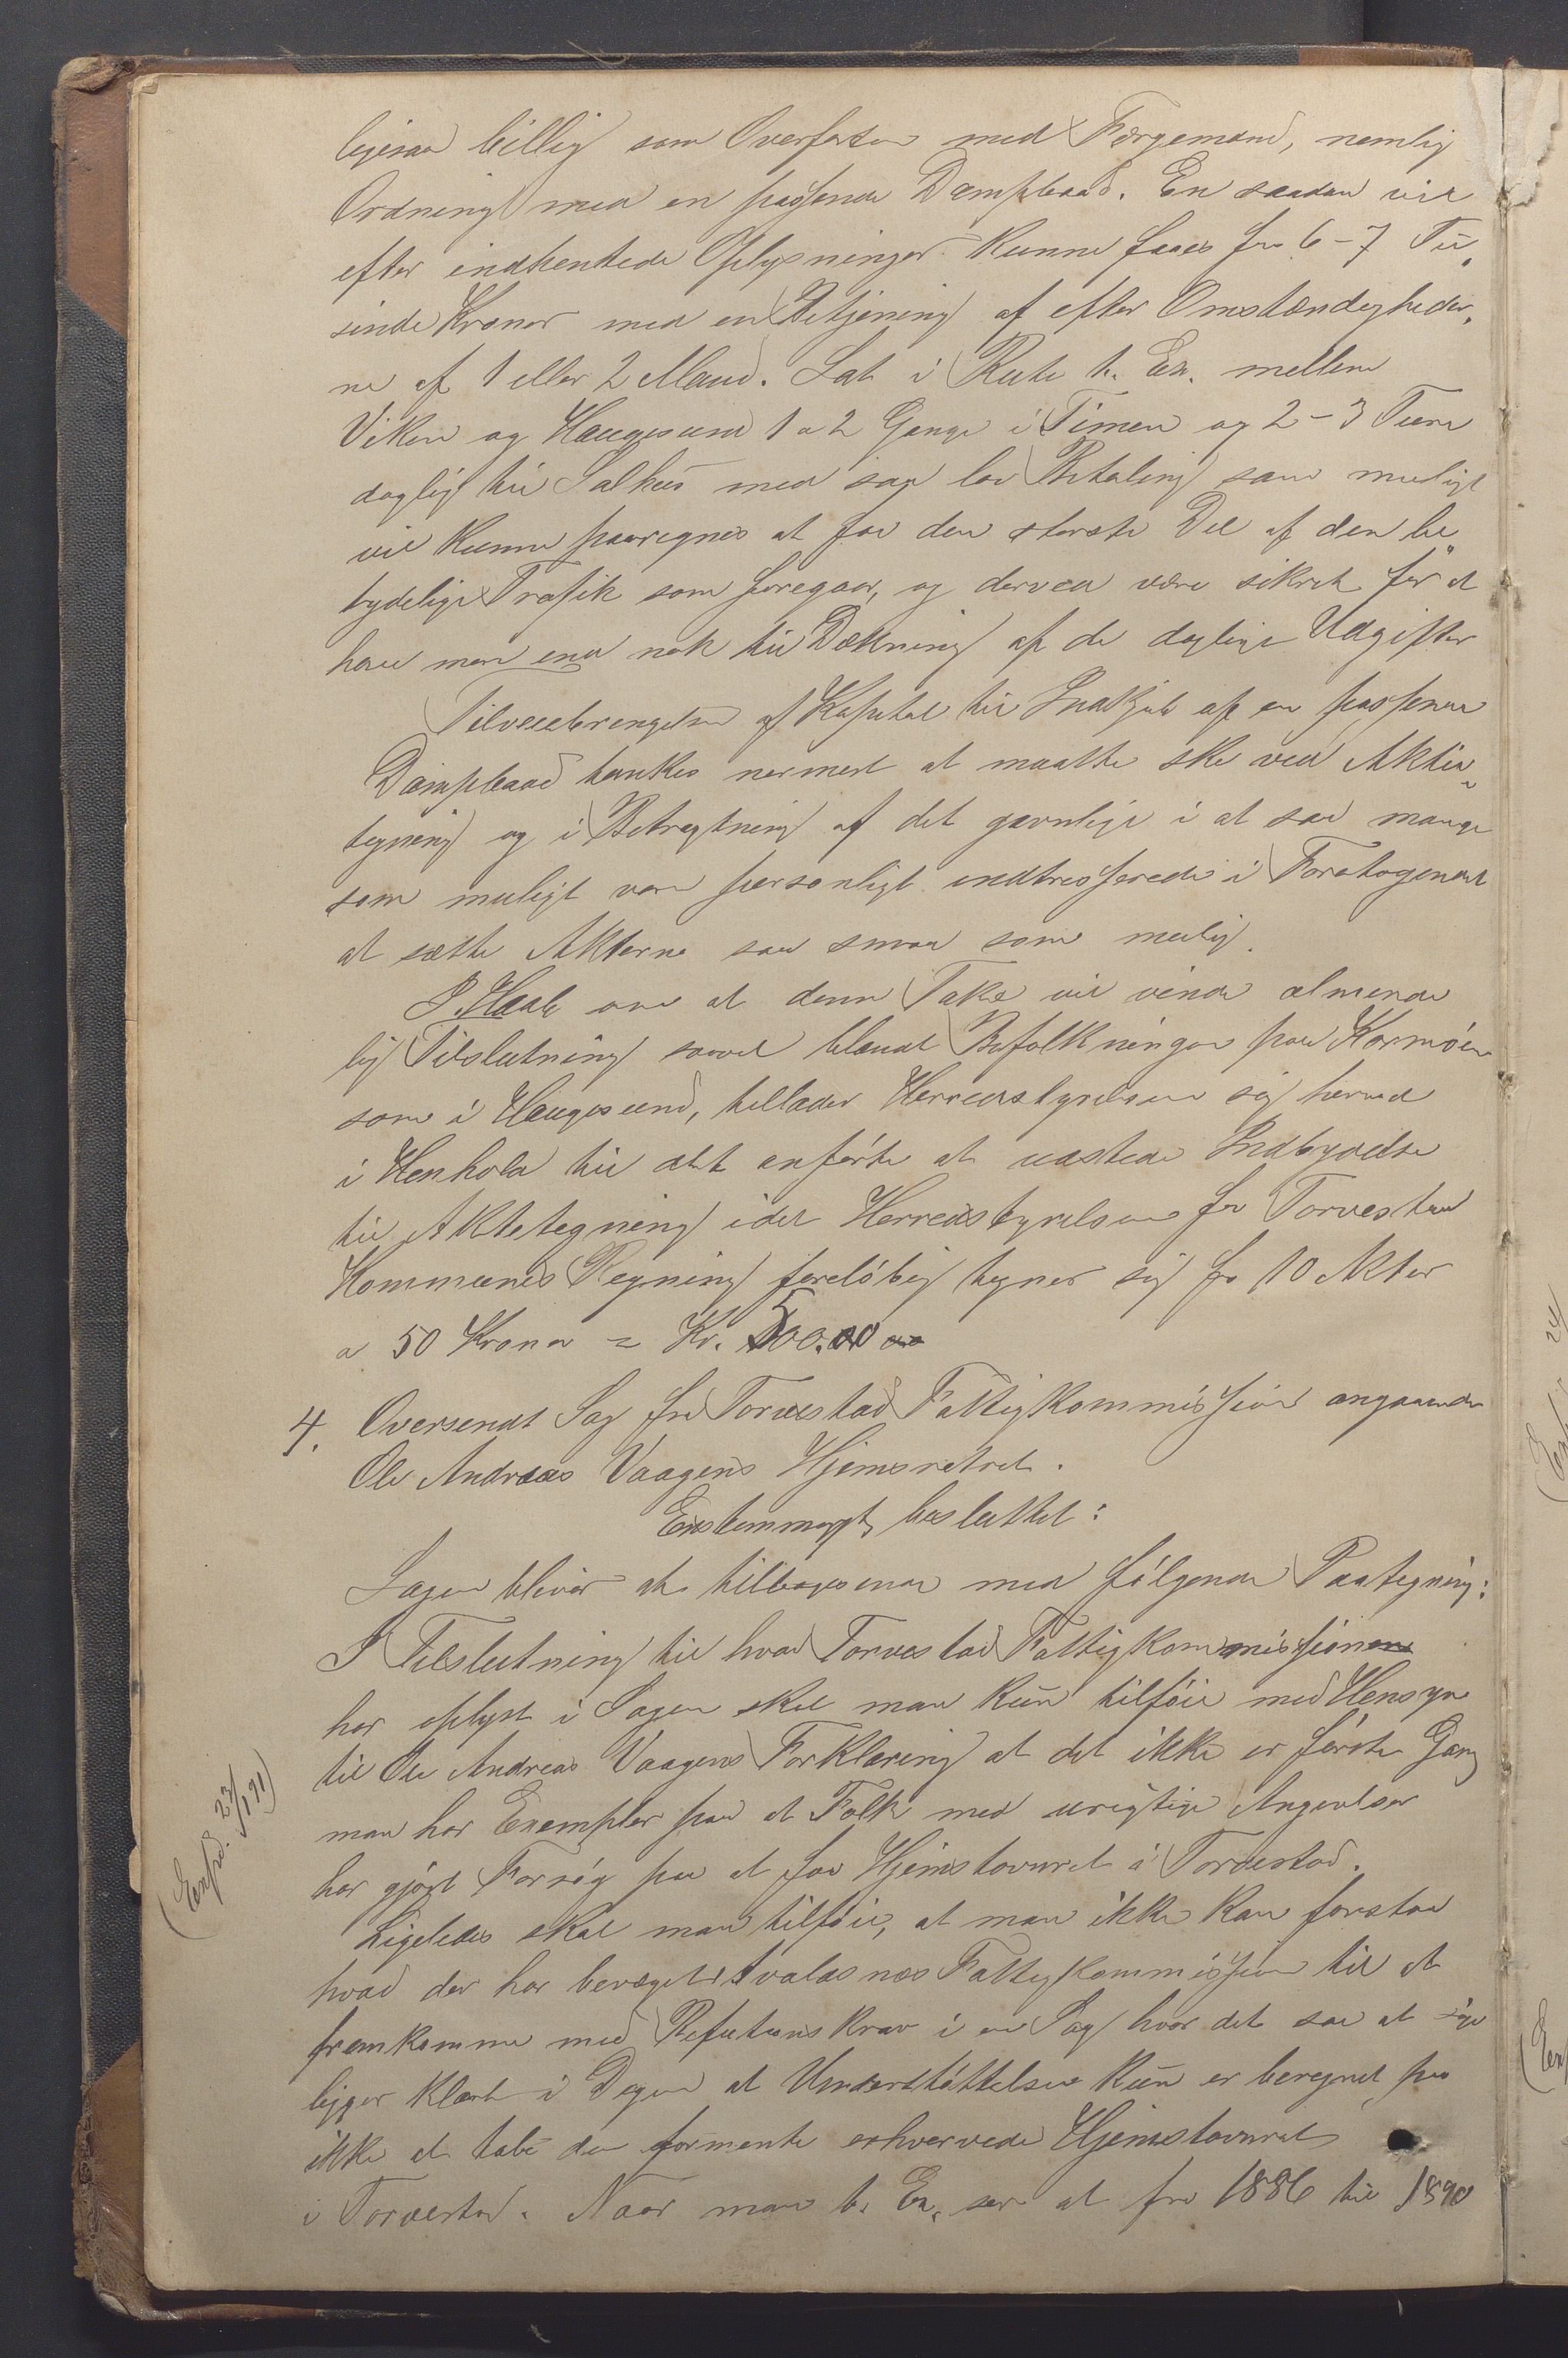 ligesaa billig som Overfarten med Færgemand, nemlig
Ordning med en passende Dampbaad. En saadan vil
efter indhentede Oplysninger kunne faaes for 6-7 Tu„
sinde Kroner med en Betjening af efter Omstændigheder„
ne af 1 eller 2 Mand. Sat i Rute t. Ex. mellem
Viken og Haugesund 1 a 2 Gange i Timen og 2-3 Ture
daglig til Salhus med saa lav Betaling som muligt
vil kunne paaregnes at faa den største Del af den be„
tydelige Trafik som foregaar, og derved være sikret for at
have mere end nok til Dækning af de daglige Udgifter
Tilveiebringelsen af Kapital til Indkjøb af en passende
Dampbaad tænkes nærmest at maatte ske ved Aktie„
tegning og i Betragtning af det gavnlige i at saa mange
som muligt vare personligt indtresserede i Foretagendet
at sætte Akterne saa smaa som mulig.
I Haab om at denne Take vil vinde almende
lig Tilslutning saavel blandt Befolkningen paa Karmøen
som i Haugesund, tillader Herredsstyrelsen sig herved
i Henhold til det anførte at udstede Indbydelse
til Aktetegning idet Herredsstyrelsen for Torvestad
Kommunes Regning foreløbig tegner sig for 10 Akter
a 50 Kroner = Kr. 500.00
4. Oversendt Sag fra Torvestad Fattigkommission angaaende
Ole Andreas Vaagens Hjemsretret.
Enstemmigt besluttet:
Sagen bliver at tilbagesende med følgende Paategning:
I Tilslutning til hvad Torvestad Fattigkommissionen
har oplyst i Sagen skal man kun tilføie med Hensyn
til Ole Andreas Vaagens Forklaring at det ikke er første Gang
man har Exempler paa at Folk med urigtige Angivelser
har gjort Forsøg paa at faa Hjemstavnret i Torvestad.
(Exped. 23/1 91)
Ligeledes skal man tilføie, at man ikke kan forstaa
hvad der har bevæget Avaldsnæs Fattigkommission til at
fremkomme med Refutionskrav i en Sag hvor det saa at sige
ligger klart i Dagen at Understøttelsen kun er beregnet paa
ikke at tabe den formente erhvervede Hjemstavnret
i Torvestad. Naar man t. Ex. ser at fra 1886 til 1890